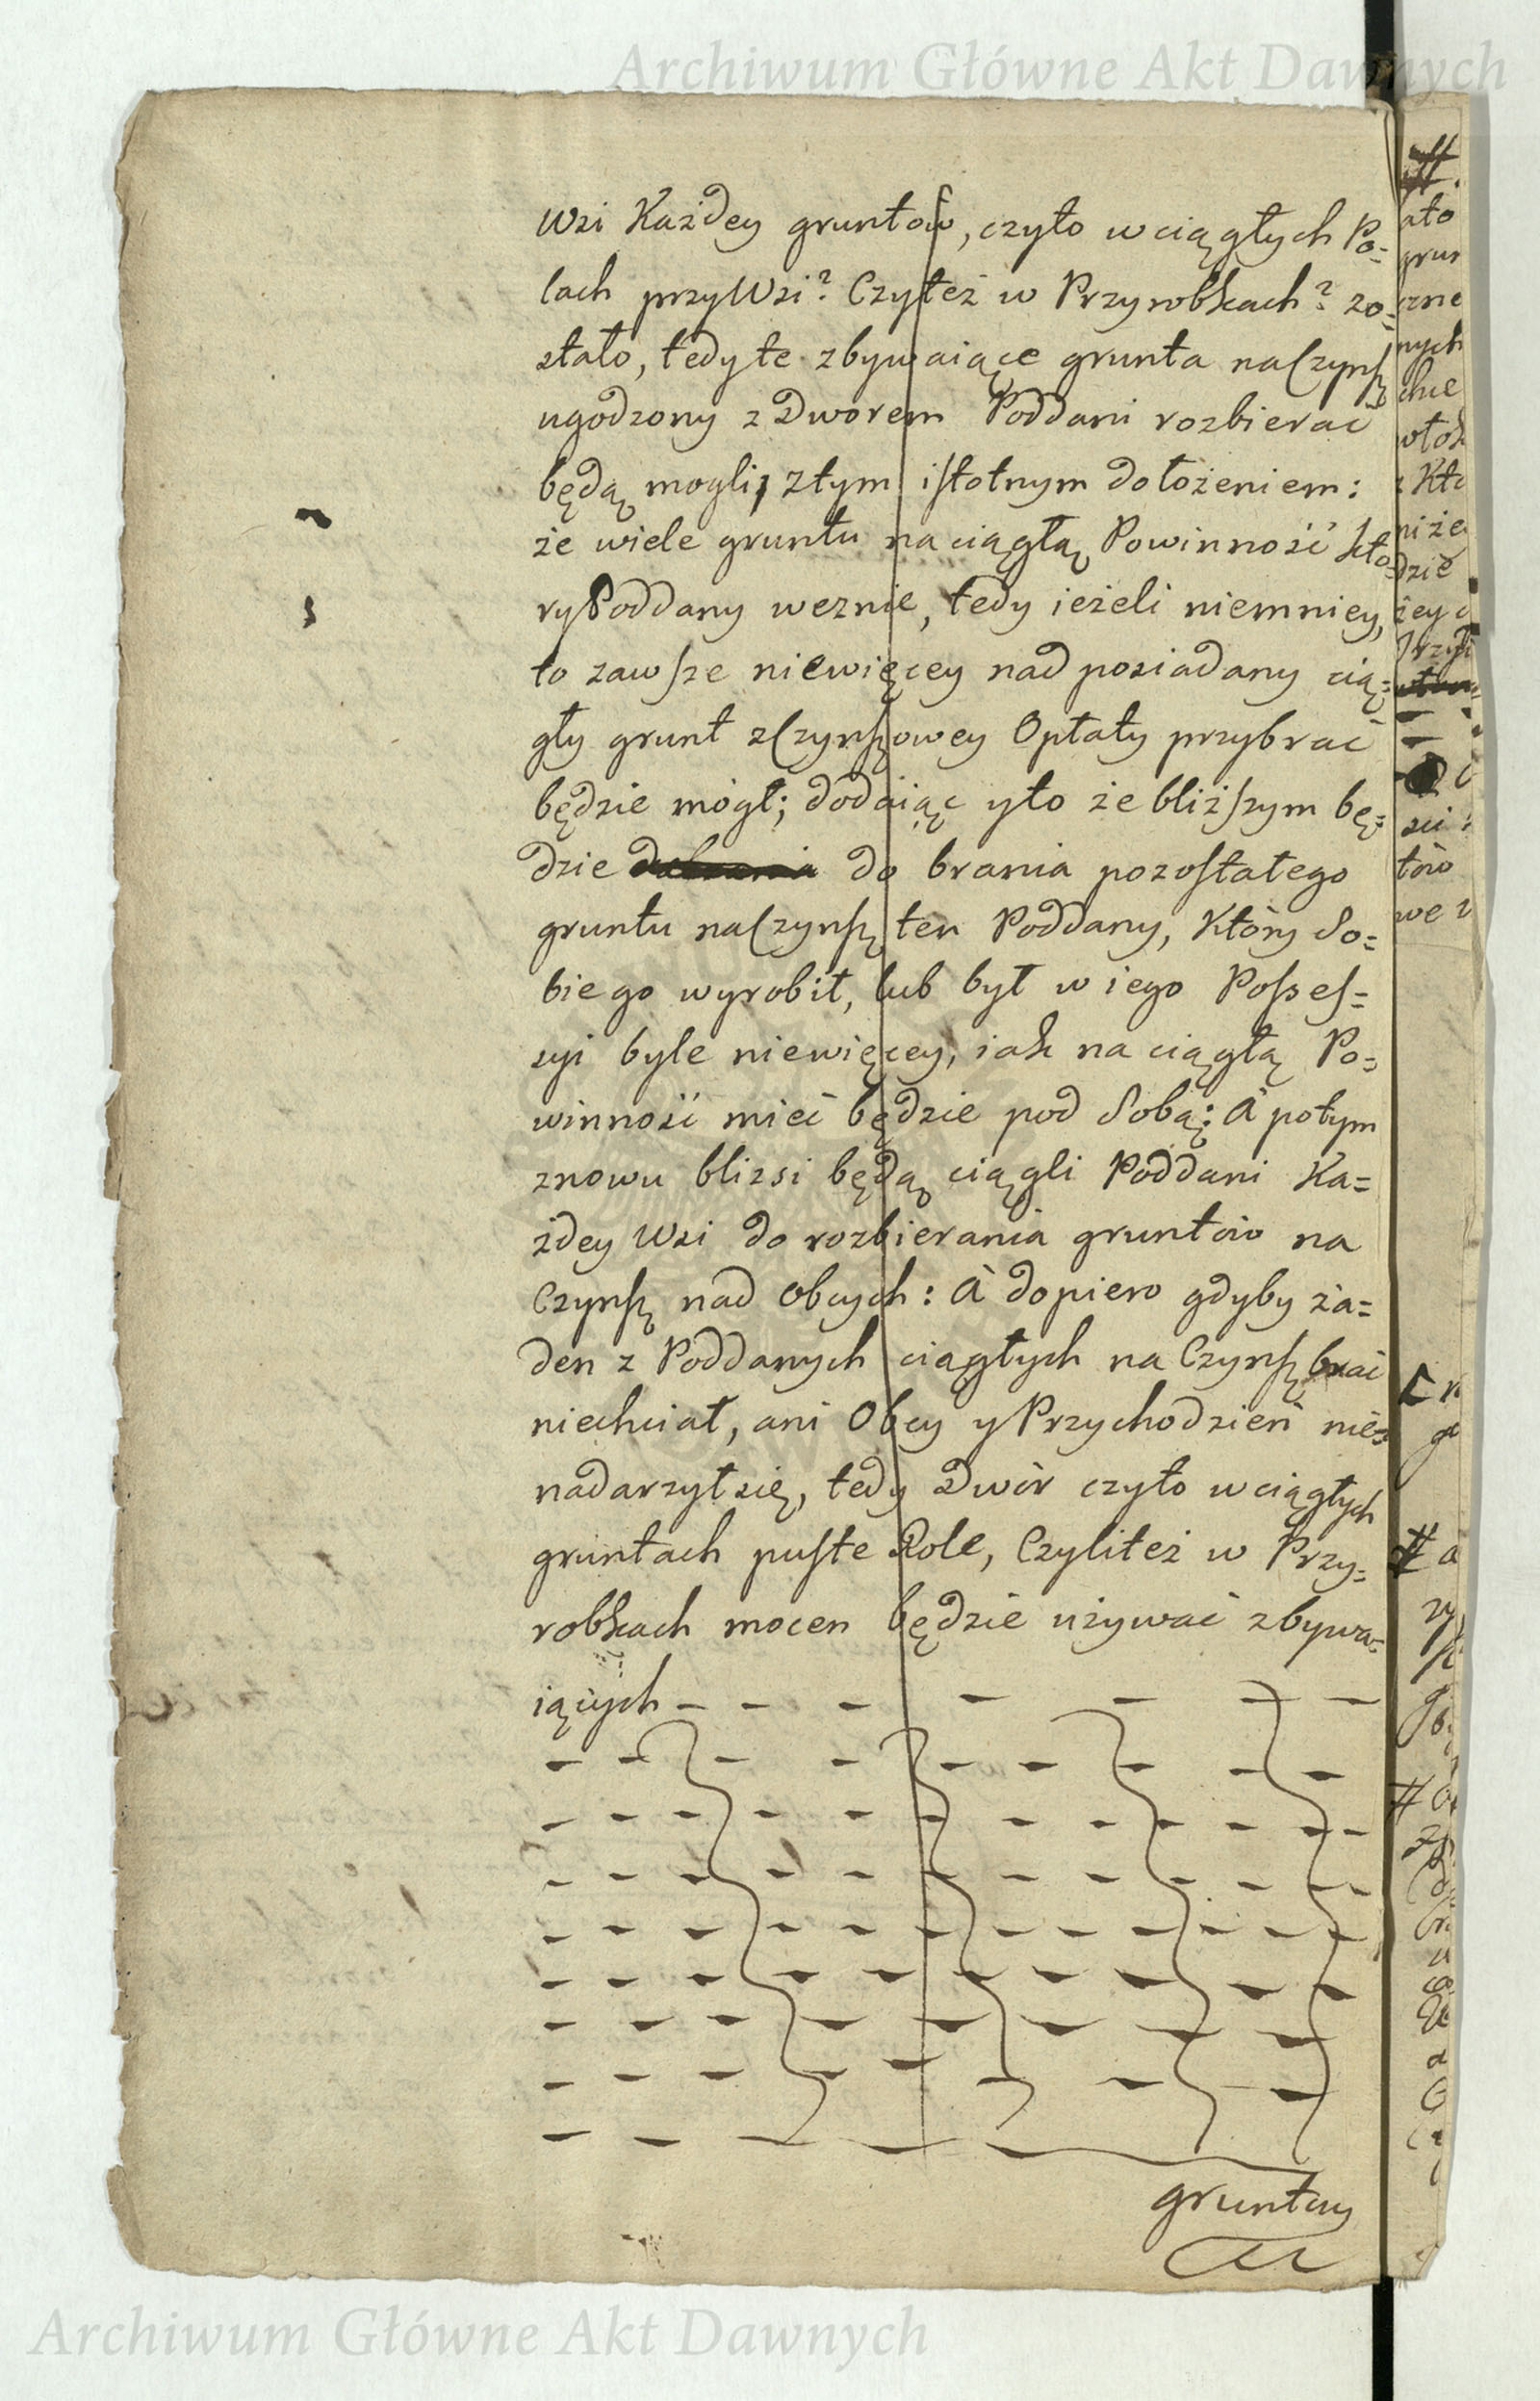 Archiwum Główne Akt Dawnych
Wsi Każdey gruntów, czyto w ciągłych Po=
lach przy Wsi? Czyteż w Przyrobkach? zo=
stało, tedy te zbywaiące grunta na Czynsz
ugodzony z Dworem Poddani rozbierać
będą mogli, z tym istotnym dołożeniem:
że wiele gruntu na ciągłą Powinność kto=
ry Poddany weznie, tedy ieżeli niemniey,
to zawsze niewięcey nad posiadany cią=
gły grunt z Czynszowey Opłaty przybrać
będzie mógł; dodaiąc y to że bliższym bę=
dzie do brania pozostałego
gruntu na Czynsz ten Poddany, Który So=
bie go wyrobił, lub był w iego Posses=
syi byle niewięcey, iak na ciągłą Po=
winność mieć będzie pod Sobą; A potym
znowu blizsi będą ciągli Poddani Ka=
żdey Wsi do rozbierania gruntów na
Czynsz nad Obcych: A dopiero gdyby ża=
den z Poddanych ciągłych na Czynsz brać
niechciał, ani Obcy y Przychodzień nie=
nadarzył się, tedy Dwór czyto w ciągłych
gruntach puste Role, Czyliteż w Przy=
robkach mocen będzie używać zbywa=
iących
gruntcuy
Archiwum Główne Akt Dawnych